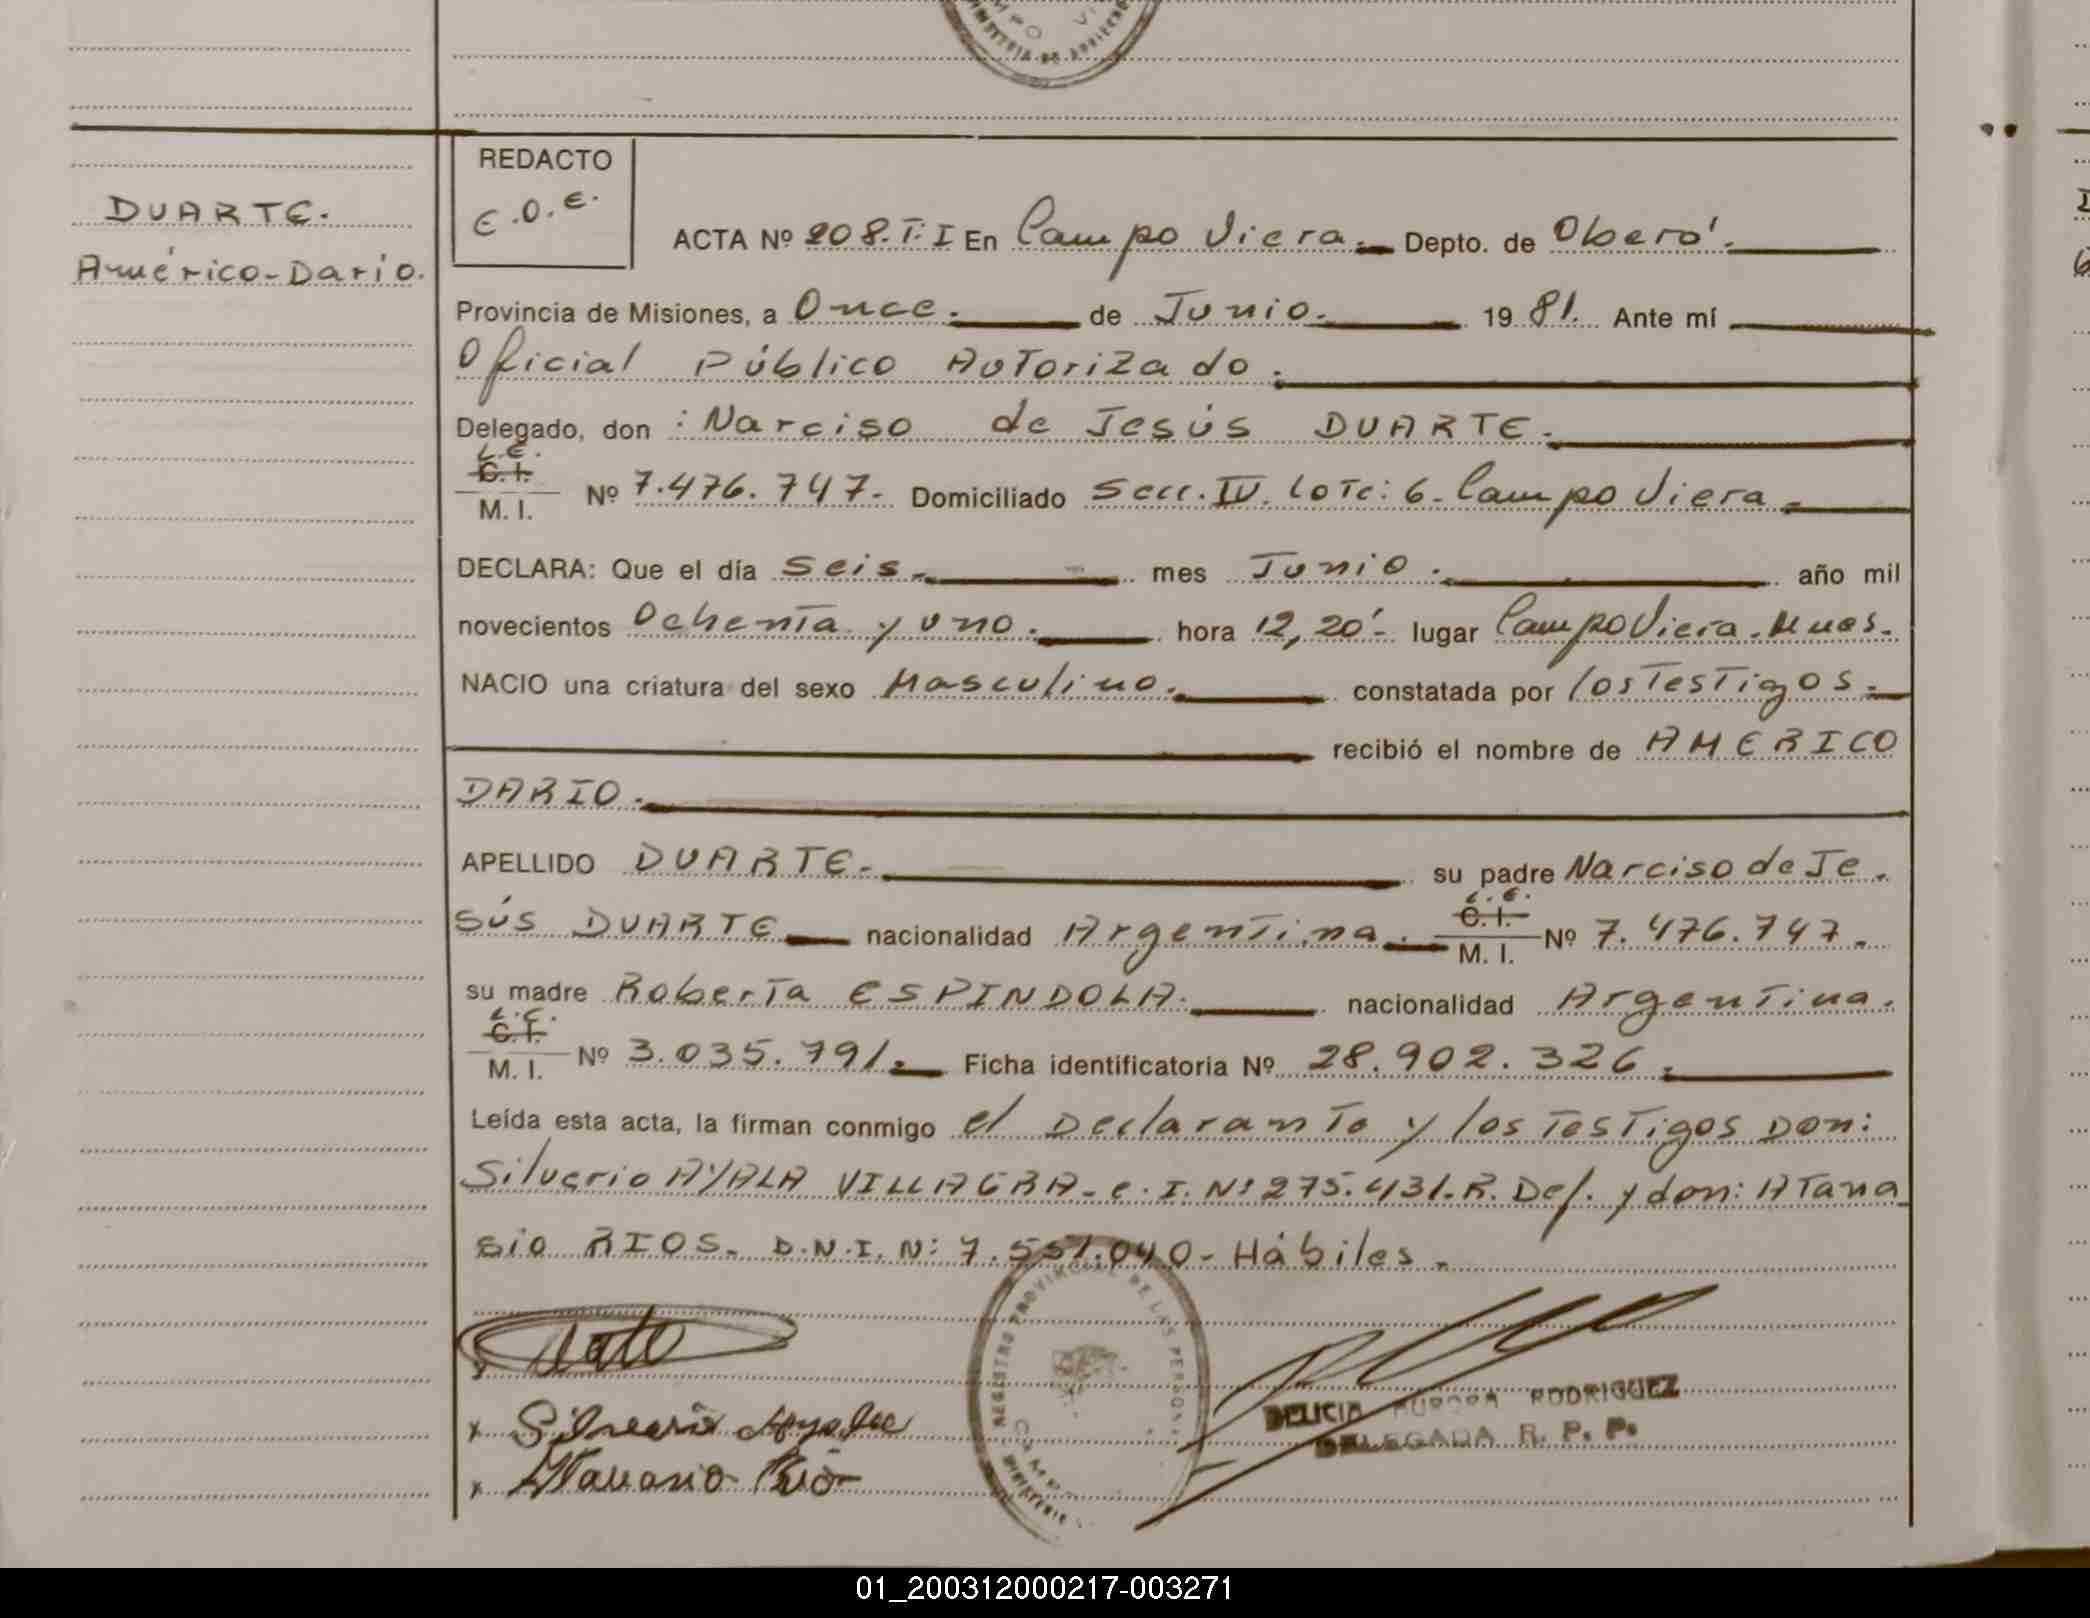 DUARTE.
Américo-Dario.
REDACTO
E.O.E.
ACTA Nº 208. T: I En Campo Viera.- Depto. de Oberá.
Provincia de Misiones, a Once. de Junio. 1981. Ante mí
Oficial Público Autorizado.
Delegado, don : Narciso de Jesús DUARTE.
L.E.
C.I.
M. I. Nº 7.476.747.- Domiciliado Secc. IV. Lote: 6- Campo Viera.
DECLARA: Que el día Seis. mes Junio. año mil
novecientos Ochenta y uno. hora 12,20'- lugar Campo Viera. Mnes.
NACIO una criatura del sexo Masculino. constatada por los Testigos.-
recibió el nombre de AMERICO
DARIO.
APELLIDO DUARTE.- su padre Narciso de Je
SÚS DUARTE nacionalidad Argentina.
L.E.
C.I.
M. I. Nº 7.476.747.
su madre Roberta ESPINDOLA. nacionalidad Argentina.
L.C.
C.I.
M. I. Nº 3.035.791. Ficha identificatoria Nº 28.902.326.
Leída esta acta, la firman conmigo el Declarante y los Testigos Don:
Silverio AYALA VILLAGRA- C.I. Nº 275.431. R. Def. y don: Atana
sio RIOS. D.N.I. N: 7.551.040- Hábiles.
REGISTRO PROVINCIAL DE LAS PERSONAS
Silverio Ayala
Atanasio Rios
DELICIA AURORA RODRIGUEZ
DELEGADA R. P. P.
01_200312000217-003271